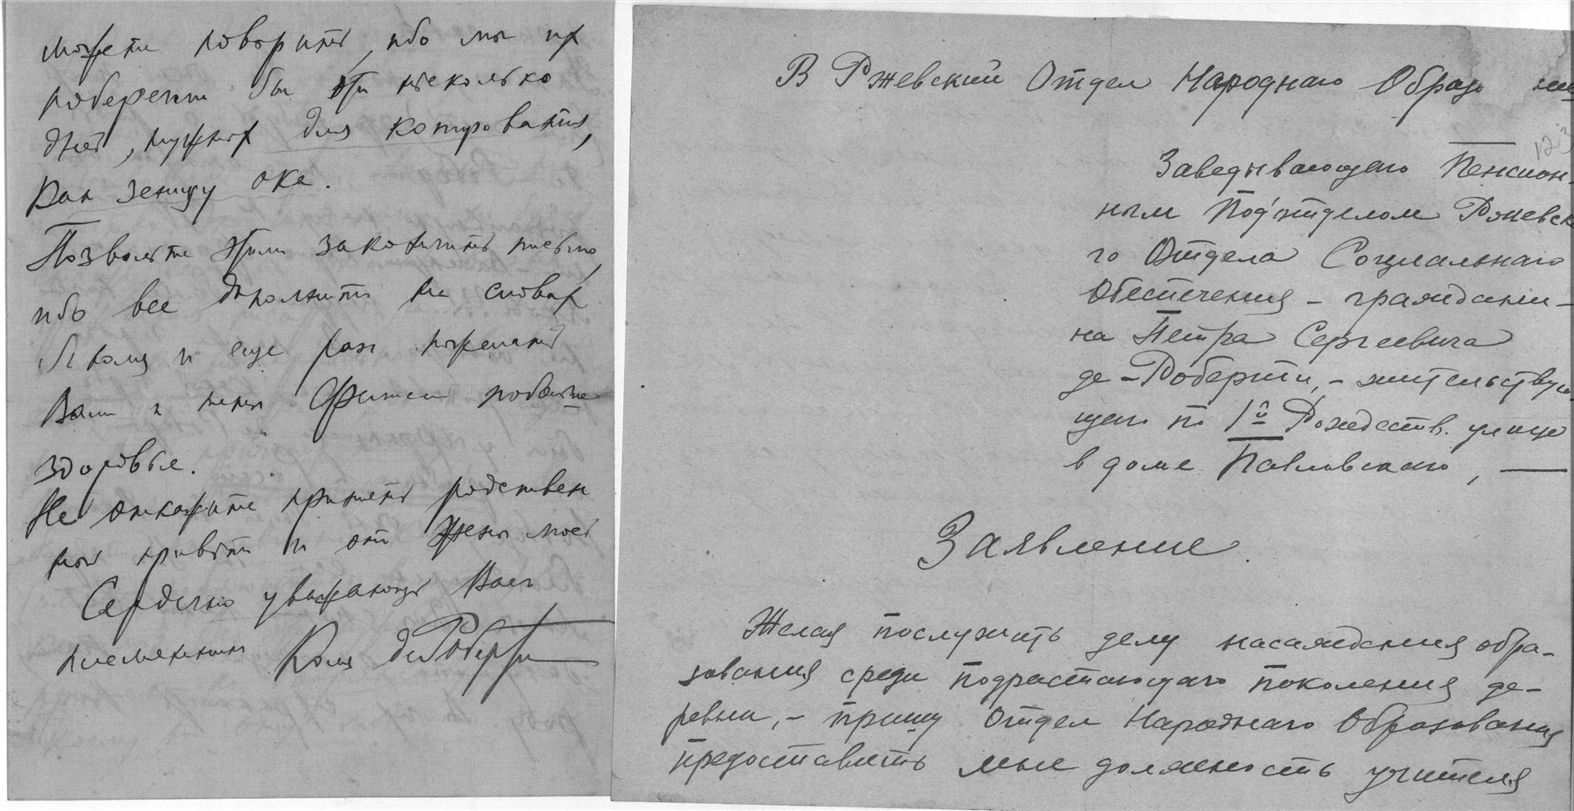 можете поверить, ибо мы их
поберегли бы эти несколько
дней, нужных для копирования,
как зеницу ока.
Позвольте этим закончить письмо,
ибо все дополнить на словах
Лично и еще раз пожелать
Вам и тети побольше
здоровья.
Не откажите принять родствен
ный привет и от жены моей
Сердечно уважающий Вас
племянник Коля де Роберти
В Ржевский Отдел Народнаго
123
Заведывающего Пенсион-
ным Под'отделом Ржевск
го Отдела Социальнаго
Обеспечения – граждани-
на Петра Сергеевича
де-Роберти, – жительствую
щего по 1й Рождеств. улице
в доме Павловскаго, —
Заявление.
Желая послужить делу насаждения обра-
зования среди подрастающаго поколения де-
ревни, – прошу Отдел Народнаго Образования
предоставить мне должность учителя